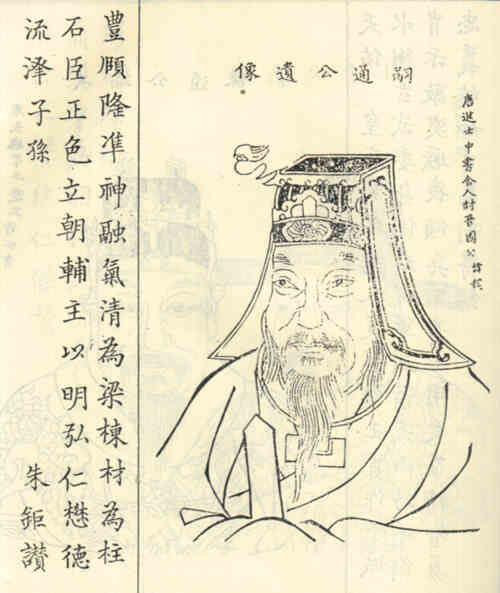 唐進士中書舍人封晉國公諱
嗣通公遺像
豐頤隆準神融氣清為梁棟材為柱
石臣正色立朝輔主以明弘仁懋德
流澤子孫 朱鉅讚